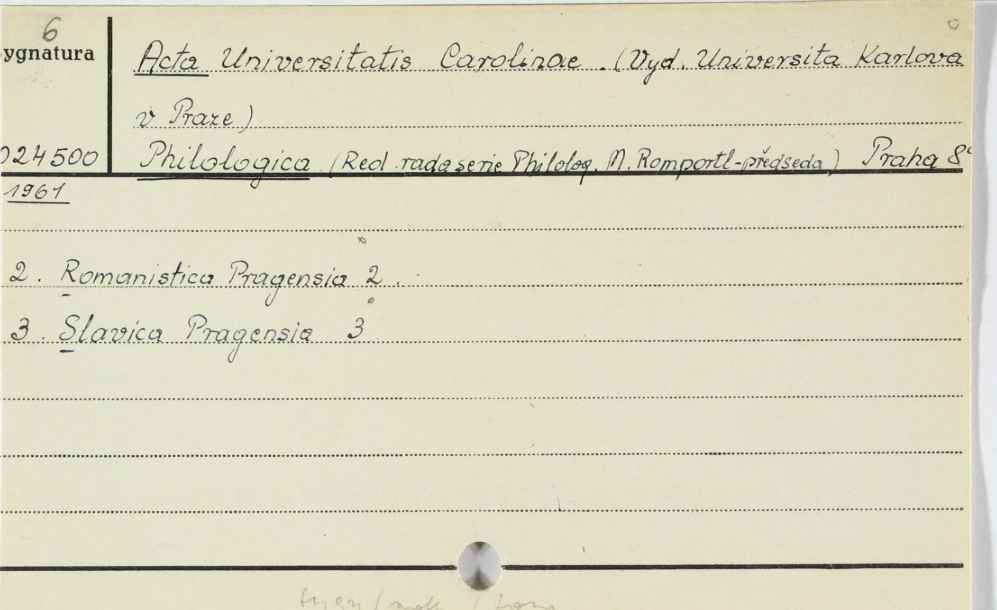 6
ygnatura
Acta Universitatis Carolinae. (Vyd. Universita Karlova
v Praze)
024500
Philologica (Red. rada serie Philolog. M. Romportl-předseda) Praha 8°
1961
2. Romanistica Pragensia 2.
3. Slavica Pragensia 3